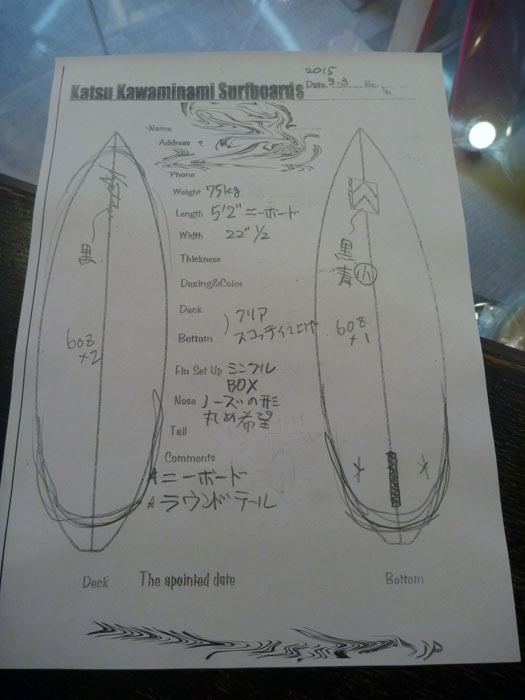 2015
Katsu Kawaminami Surfboards Date 9.3 No.
Name
Address
Phone
Weight 75kg
Length 5'2" ニーボード
Width 22" 1/2
Thickness
Desing&Color
Deck クリア
Bottom
Fin Set Up シングル
BOX
Nose ノーズの形
丸め希望
Tail
Comments
ニーボード
ラウンドテール
黒
608
×2
黒
青 小
608
×1
Deck
The apointed date
Bottom